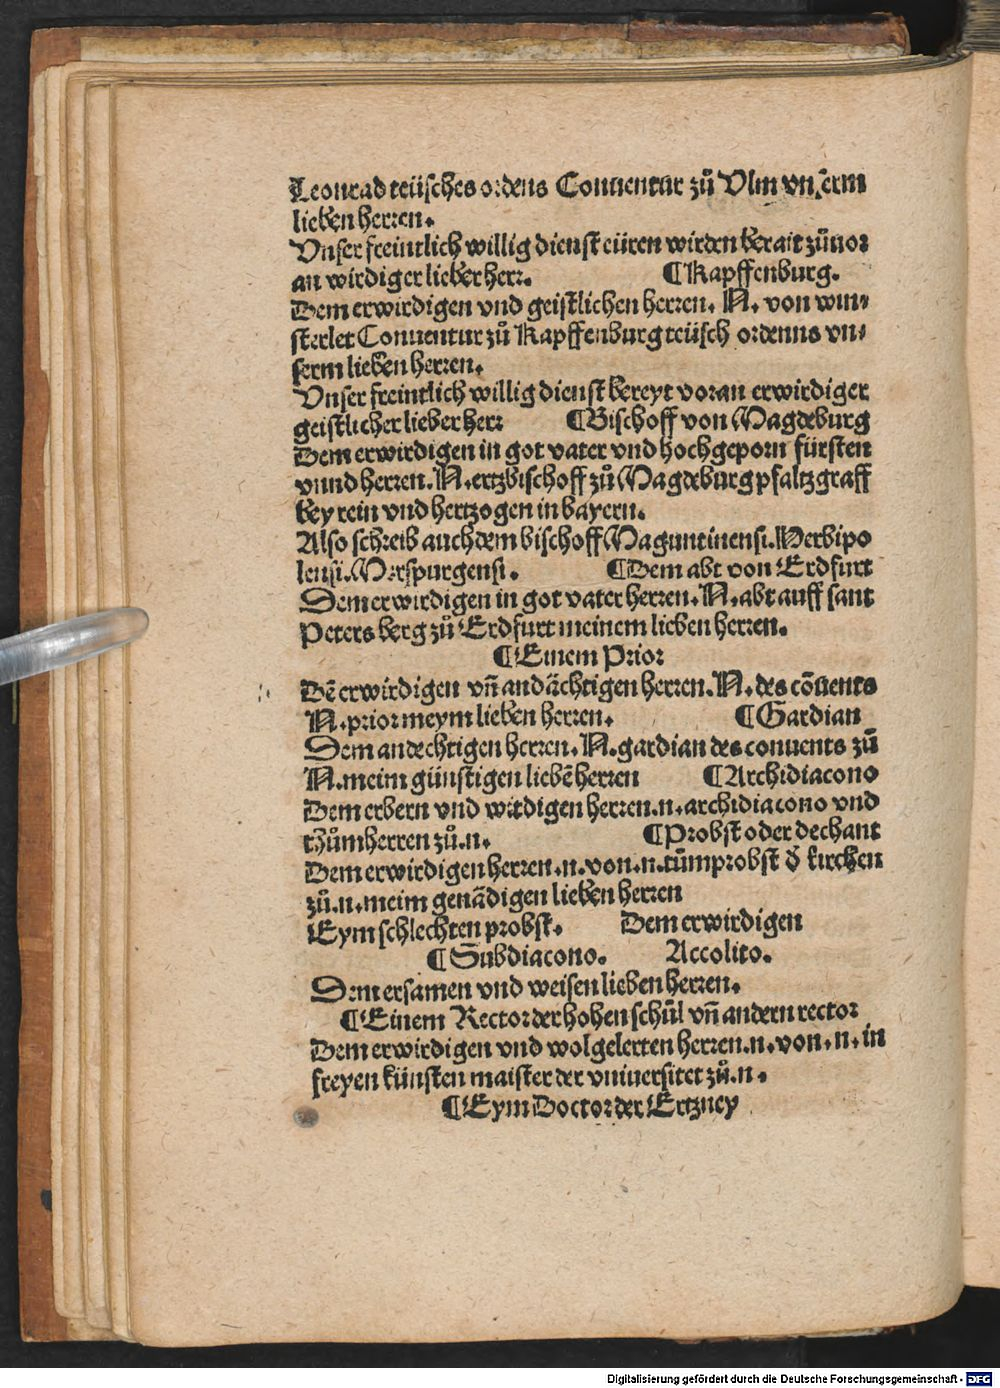 Leonrad teüsches ordens Conuentur zů Vlm vnserm
lieben herren.
Vnser freintlich willig dienst eüren wirden berait zůuor
an wirdiger lieber herr. ¶Kapffenburg.
Dem erwirdigen vnd geistlichen herren. N. von win⸗
sterlet Conuentur zů Kapffenburg teüsch ordenns vn⸗
serm lieben herren.
Vnser freintlich willig dienst bereyt voran erwirdiger
geistlicher lieber herr ¶Bischoff von Magdeburg
Dem erwirdigen in got vater vnd hochgeporn fürsten
vnnd herren. N. ertzbischoff zů Magdeburg pfaltzgraff
bey rein vnd hertzogen in bayern.
Also schreib auch dem bischoff Maguntinensi. Herbipo
lensi. Merspurgensi. ¶Dem abt von Erdfurt
Dem erwirdigen in got vater herren. N. abt auff sant
Peters berg zů Erdfurt meinem lieben herren.
¶Einem Prior
Dē erwirdigen vñ andächtigen herren. N. des cōuents
N. prior meym lieben herren. ¶Gardian
Dem andechtigen herren. N. gardian des conuents zů
N. meim günstigen liebē herren ¶Archidiacono
Dem erbern vnd wirdigen herren .n. archidiacono vnd
thůmherren zů .n. ¶Probst oder dechant
Dem erwirdigen herren .n. von .n. tůmprobst d̄ kirchen
zů .n. meim genādigen lieben herren
Eym schlechten probst. Dem erwirdigen
¶Subdiacono. Accolito.
Dem ersamen vnd weisen lieben herren.
¶Einem Rector der hohen schůl vñ andern rector
Dem erwirdigen vnd wolgelerten herren .n. von .n. in
freyen künsten maister der vniuersitet zů .n.
¶Eym Doctor der Ertzney
Digitalisierung gefördert durch die Deutsche Forschungsgemeinschaft - DFG